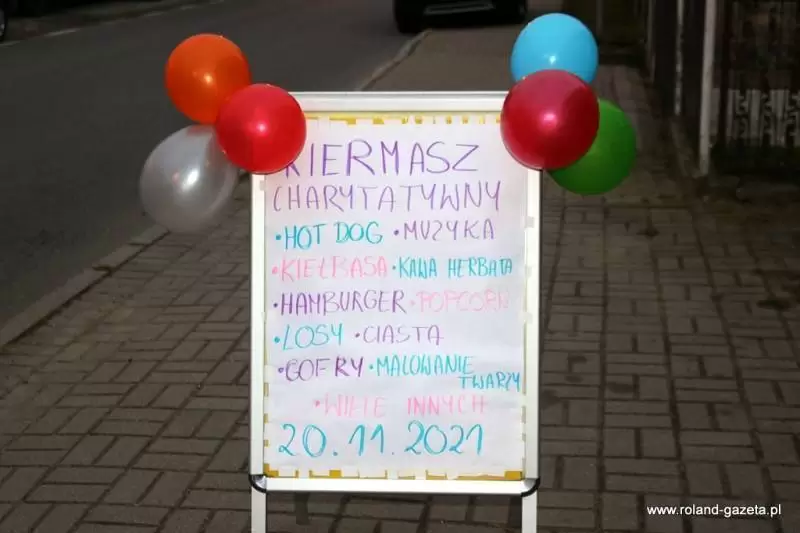 KIERMASZ
CHARYTATYWNY
•HOT DOG •MUZYKA
•KIEŁBASA •KAWA HERBATA
•HAMBURGER •POPCORN
•LOSY •CIASTA
•GOFRY •MALOWANIE
TWARZY
•WIELE INNYCH
20.11.2021
www.roland-gazeta.pl